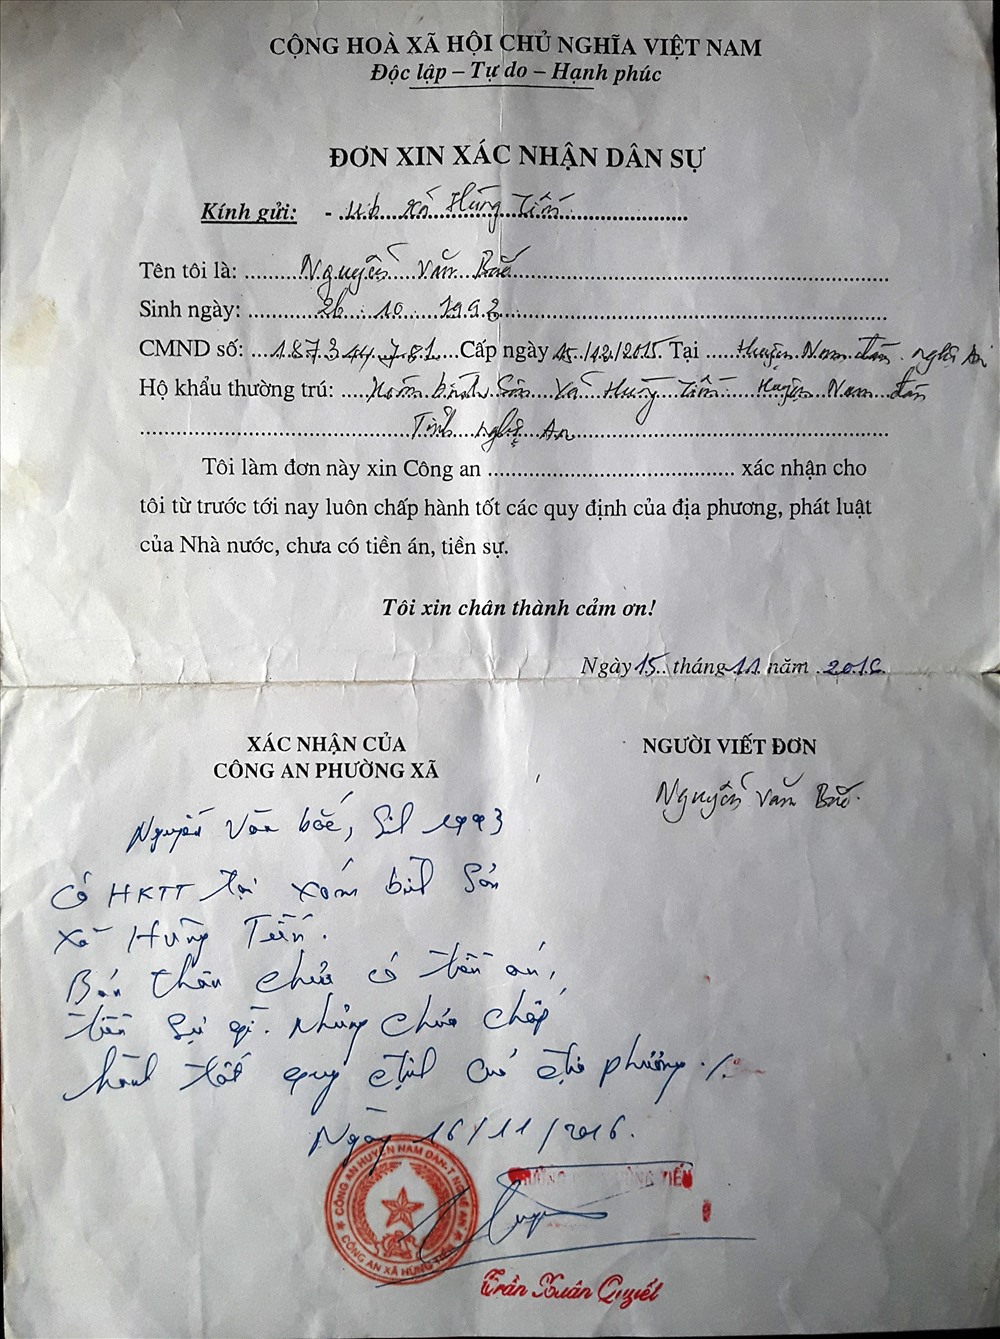 CỘNG HOÀ XÃ HỘI CHỦ NGHĨA VIỆT NAM
Độc lập – Tự do – Hạnh phúc
ĐƠN XIN XÁC NHẬN DÂN SỰ
Kính gửi: - Ub xã Hùng Tiến
Tên tôi là: Nguyễn Văn Bắc
Sinh ngày: 26 10 1993
CMND số: 187344781 Cấp ngày 15/12/2015 Tại Huyện Nam đàn nghệ An
Hộ khẩu thường trú: Xóm bình Sơn Xã Hùng Tiến Huyện Nam đàn
Tỉnh nghệ An
Tôi làm đơn này xin Công an ........................................ xác nhận cho
tôi từ trước tới nay luôn chấp hành tốt các quy định của địa phương, phát luật
của Nhà nước, chưa có tiền án, tiền sự.
Tôi xin chân thành cảm ơn!
Ngày 15 tháng 11 năm 2016
XÁC NHẬN CỦA
CÔNG AN PHƯỜNG XÃ
NGƯỜI VIẾT ĐƠN
Nguyễn Văn Bắc
Nguyễn Văn bắc, 1993
Có HKTT tại xóm bình Sơn
xã Hùng Tiến.
Bản thân chưa có tiền án,
tiền sự gì. Nhưng chưa chấp
hành tốt quy định của địa phương ./.
Ngày 16/11/2016.
CÔNG AN HUYỆN NAM ĐÀN-T NGHỆ AN
CÔNG AN XÃ HÙNG TIẾN
Trần Xuân Quyết